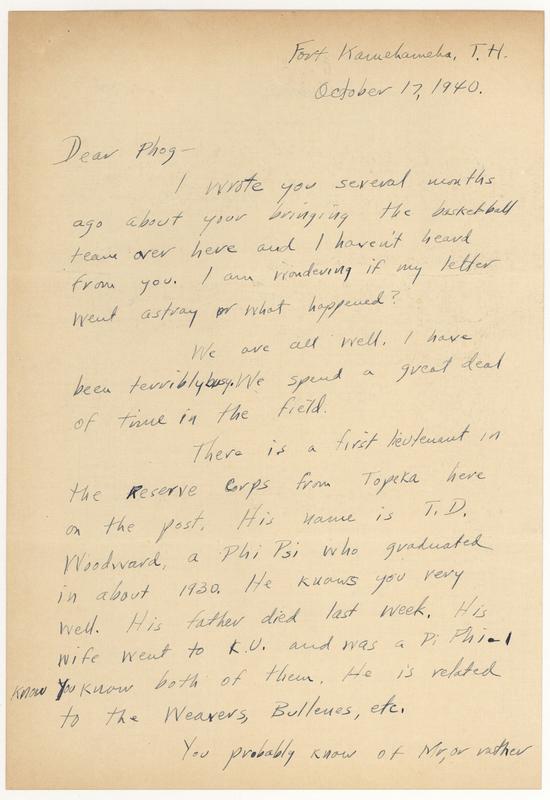 Fort Kamehameha, T.H.
October 17, 1940.
Dear Phog—
I wrote you several months
ago about your bringing the basketball
team over here and I haven't heard
from you. I am wondering if my letter
went astray or what happened?
We are all well. I have
been terribly busy. We spend a great deal
of time in the field.
There is a first lieutenant in
the Reserve Corps from Topeka here
on the post. His name is T.D.
Woodward, a Phi Psi who graduated
in about 1930. He knows you very
well. His father died last week. His
wife went to K.U. and was a Pi Phi—I
know you know both of them. He is related
to the Weavers, Bullenes, etc.
You probably know of Mr, or rather